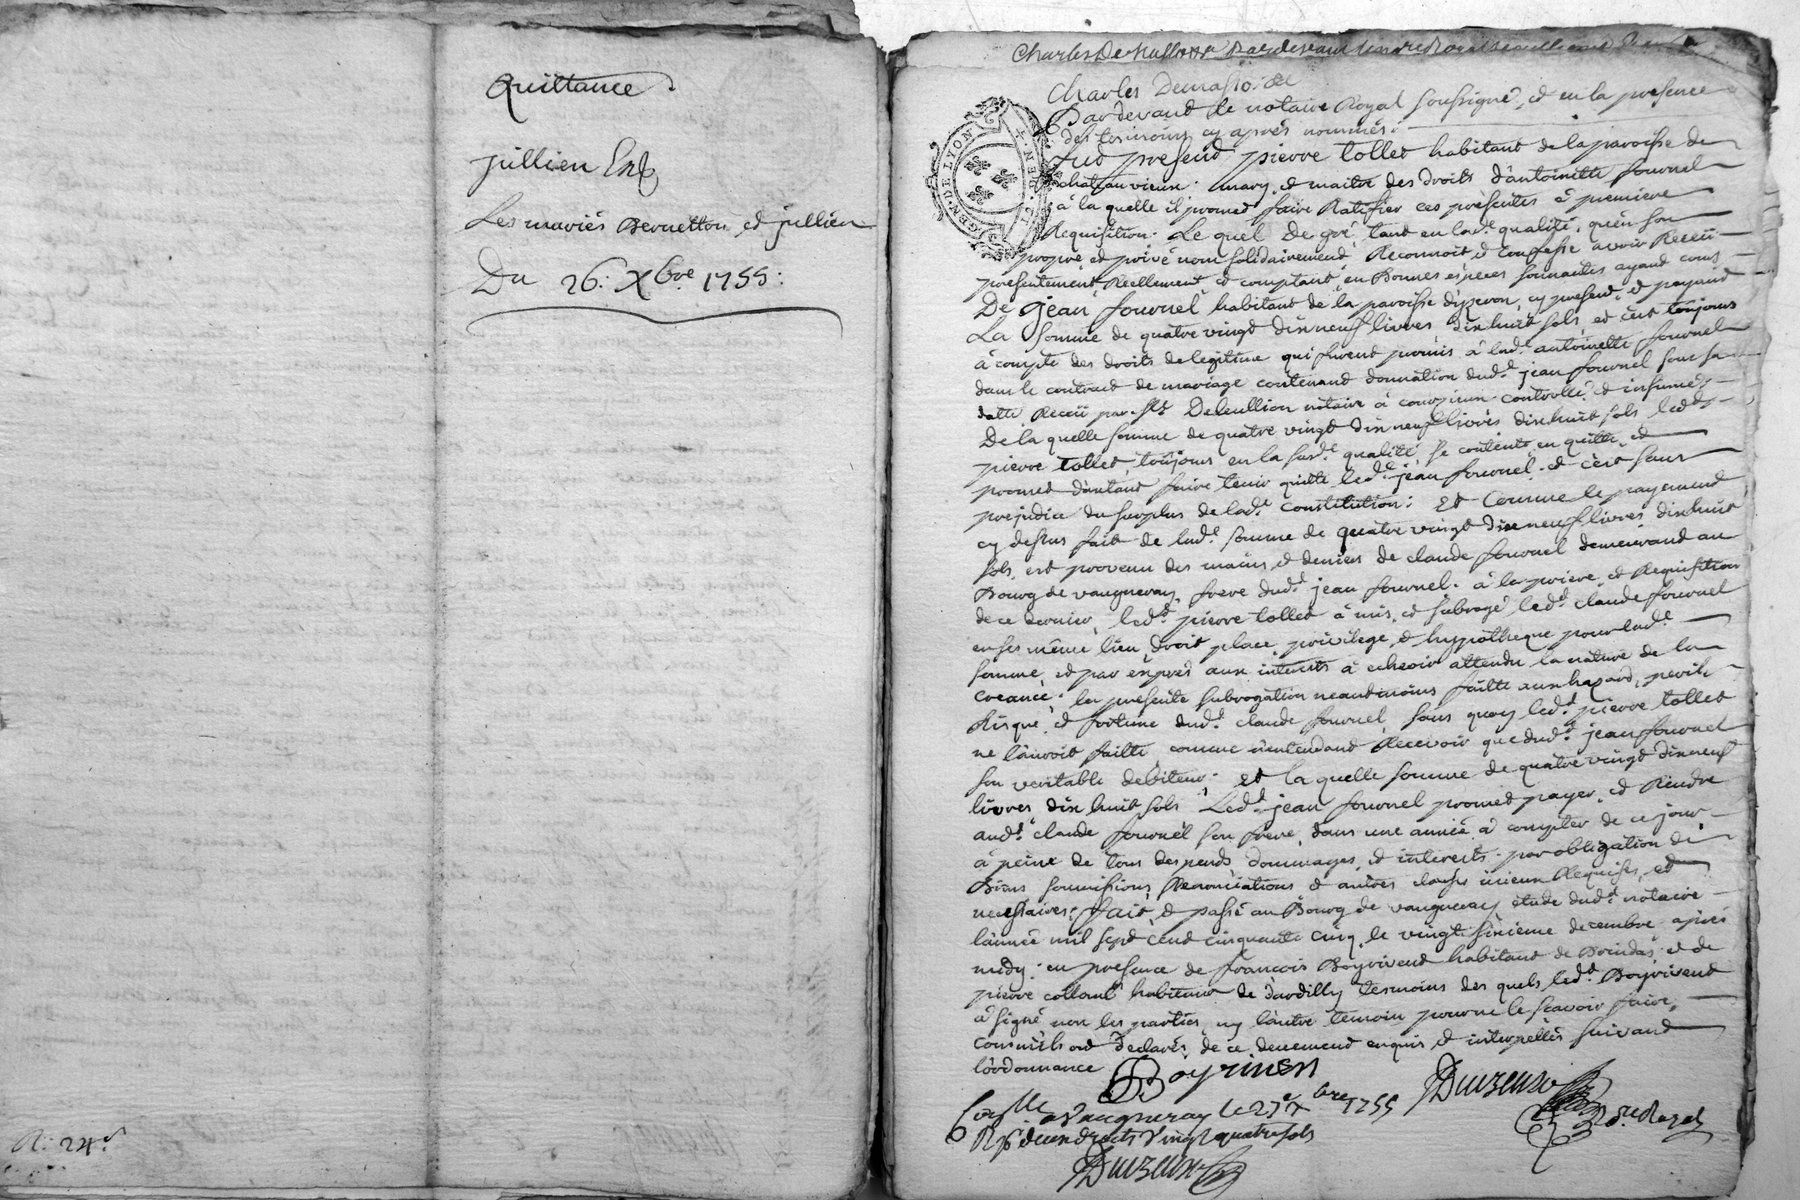 Quittance
jullien
Les mariés Bernetton et jullien
Du 26: Xbre 1755:
R: 24s
Charles De
Charles
GEN · DE LYON
Pardevant le notaire Royal soussigné, et en la presence
des tesmoins cy aprés nommés:
fut present pierre tollet habitant de la paroisse de
chateauvieux mary et maitre des droits d'antoinette fournel
à la quelle il promet faire Ratifier ces presentes à premiere
Requisition. Le quel De gré, tant en lad.e qualité, qu'en son
propre et privé nom solidairement, Reconnoit et confesse avoir Receü
presentement, Réellement, et comptant, en Bonnes especes sonnantes ayant cours
De jean fournel habitant de la paroisse d'yzeron, cy present, et payant
La somme de quatre vingt dix neuf livres dix huit sols, et c'est toujours
à compte des droits de legitime qui furent promis à lad.e antoinette fournel
dans le contract de mariage contenant donnation dud.t jean fournel sous sa
datte Receü par notaire à controllé, et insinué;
De la quelle somme de quatre vingt dix neuf livres dix huit sols led.t
pierre tollet, toujours en la sus.de qualité, se contente, en quitte, et
promet d'autant faire tenir quitte led.t jean fournel. et c'est sans
prejudice du surplus de lad.e constitution: Et comme le payement
cy dessus fait de lad.e somme de quatre vingt dix neuf livres dix huit
sols, est provenu des mains, et deniers de claude fournel demeurant au
Bourg de vaugneray, frere dud.t jean fournel. à la priere, et Requisition
de ce dernier, led.t pierre tollet à mis, et subrogé led.t claude fournel
en ses même lieu, droit place, privilege, et hypotheque pour lad.e
somme, et par exprés aux interests à echeoir attendu la nature de la
creance; la presente subrogation neantmoins faitte aux hazard, peril,
Risque, et fortune dud.t claude fournel, sans quoy led.t pierre tollet
ne l'auroit faitte comme n'entendant Recevoir que dud.t jean fournel
son veritable debiteur. Et la quelle somme de quatre vingt dix neuf
livres dix huit sols Led.t jean fournel promet payer, et Rendre
aud.t claude fournel son frere, dans une année à compter de ce jour
à peine de tous despends dommages, et interests. par obligation de
Biens soumissions, Renonciations et autres clauses mieux Requises, et
necessaires; fait, et passé au Bourg de vaugneray etude dud.t notaire
l'année mil sept cent cinquante cinq, le vingt sixieme decembre aprés
midy; en presence de francois Boyrivent habitant de Brindas, et de
pierre habitant de Dardilly tesmoins des quels led.t Boyrivent
à signé non les parties, ny l'autre temoin pour ne le scavoir faire,
comm'ils ont declarés, de ce deuement enquis, et interpellés suivant
l'ordonnance
Boyriven
Duizeux
à Vaugneray le 27e Xbre 1755
deux droits Vingt quatre sols
Duizeux